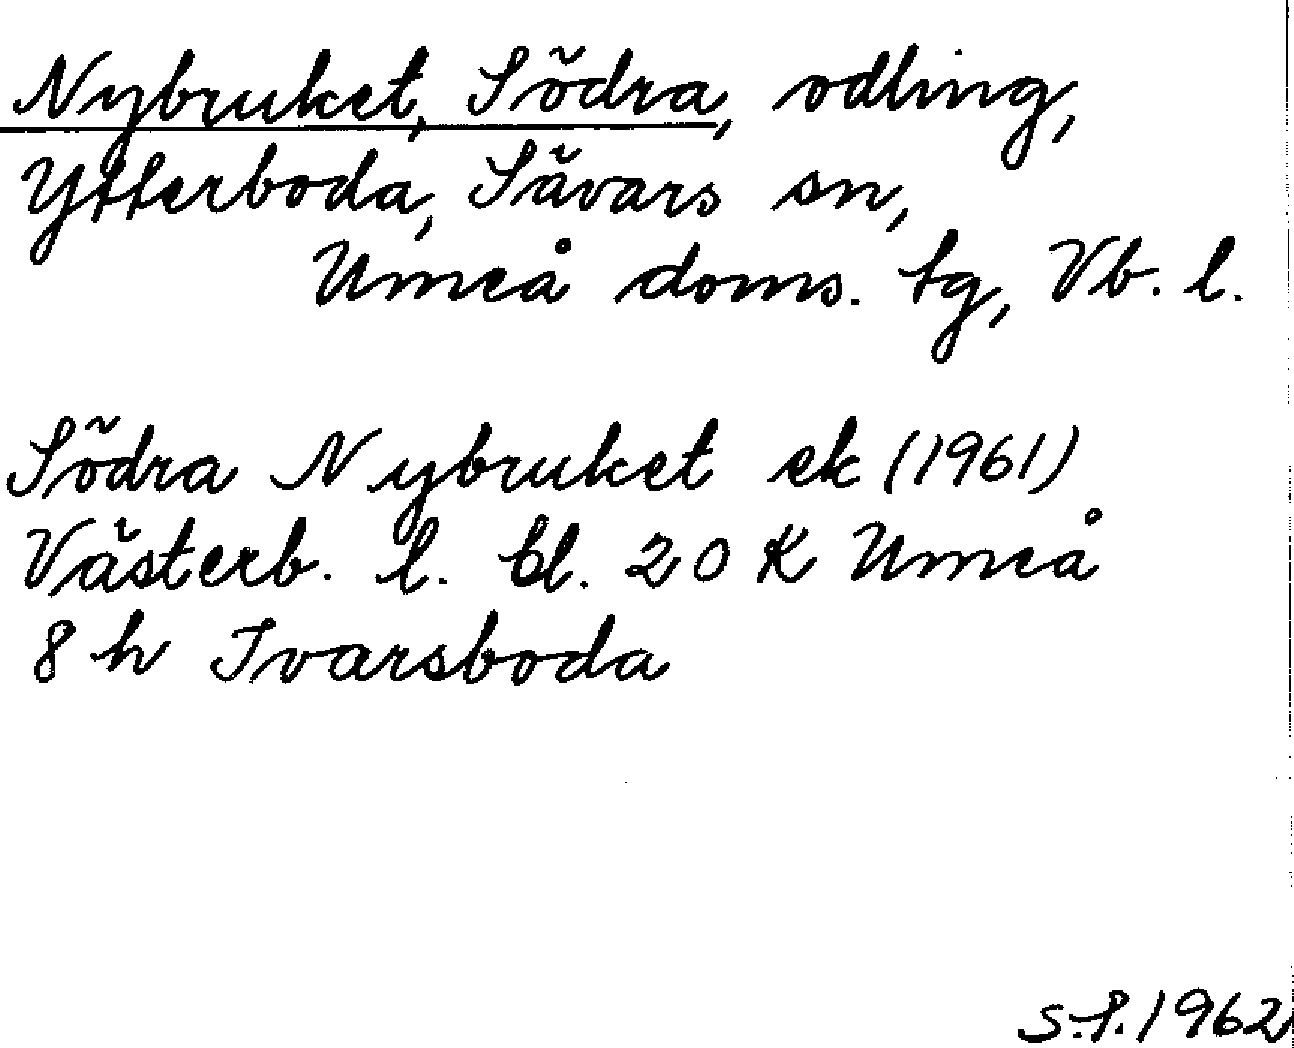 Nybruket, Södra, odling,
Ytterboda, Sävars sn,
Umeå doms. tg, Vb. l.
Södra Nybruket ek (1961)
Västerb. l. bl. 20 K Umeå
8 h Ivarsboda
S.f. 1962